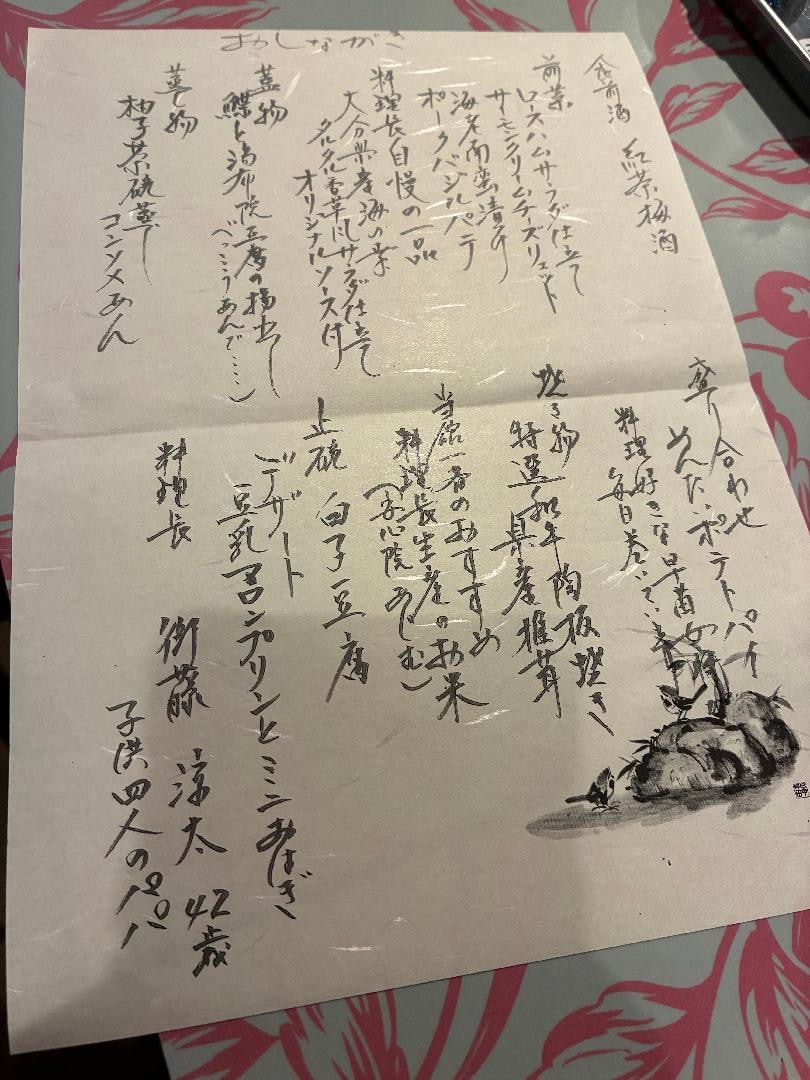 おしながき
食前酒
紅茶梅酒
前菜
ロースハムサラダ仕立て
サーモンクリームチーズリエット
海老南蛮漬け
ポークバジルパテ
料理長自慢の一品
大分県産海の幸
タルタル香草にしサラダ仕立て
オリジナルソース付
蓋物
鰈と湯布院豆腐の揚出し
べっこうあんで…)
蒸し物
柚子茶碗蒸し
コンソメあん
盛り合わせ
めんたいポテトパイ
料理好きな早苗
毎日巻いています
焼き物
特選和牛陶板焼き
県産椎茸
当館一番のおすすめ
料理長生産のお米
(安心院 あじむ)
止碗 白子豆腐
デザート
豆乳マロンプリンとミニおはぎ
料理長
衛藤 涼太 42歳
子供四人のパパ